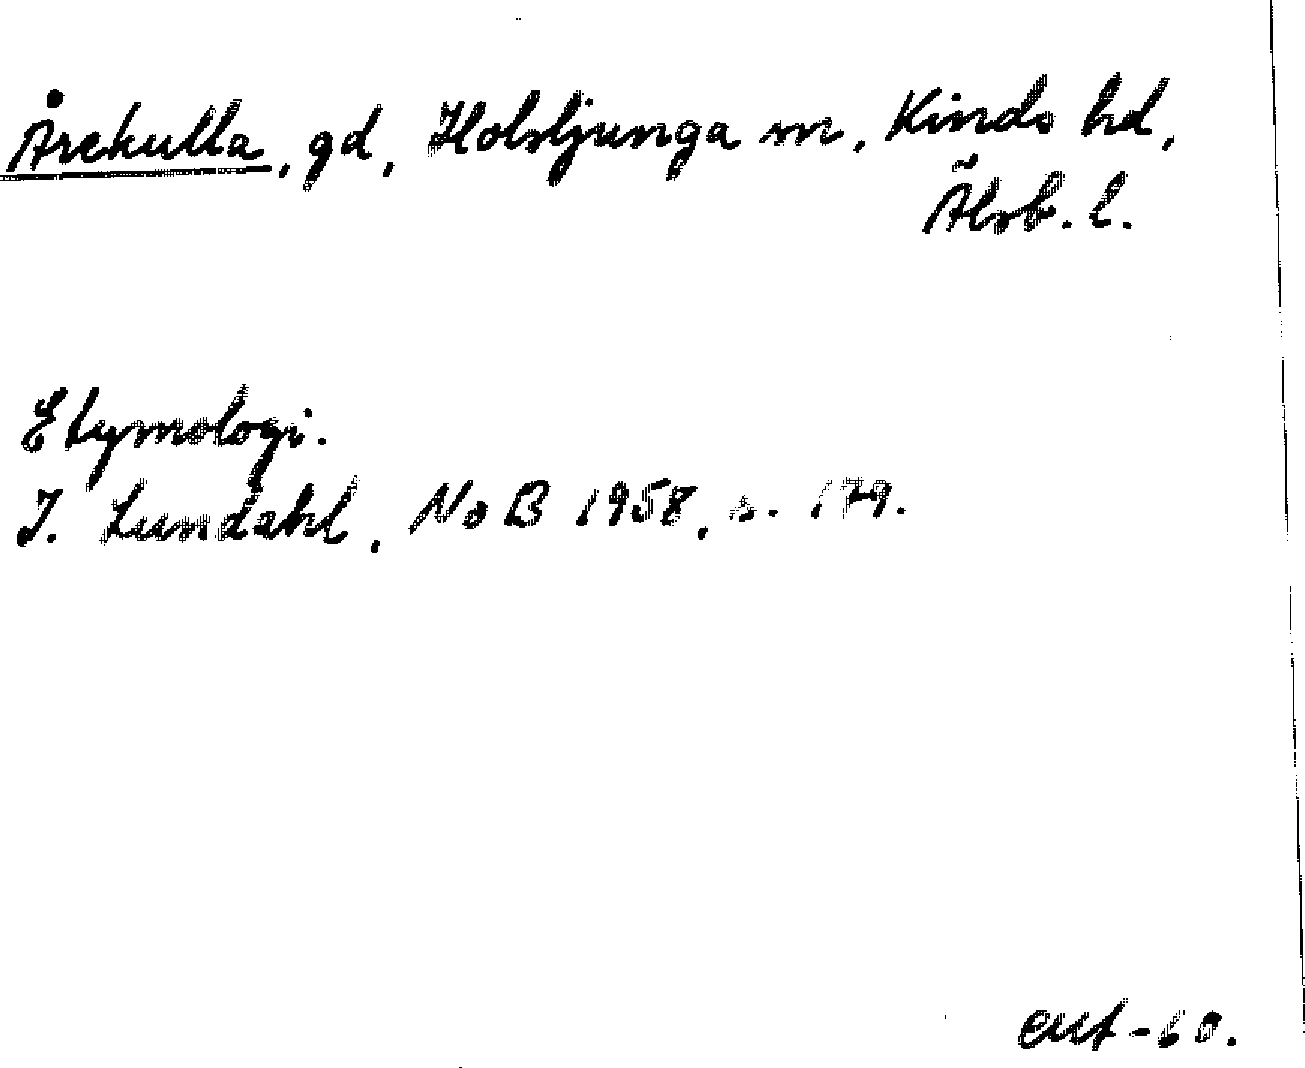 Årekulla, gd, Holsljunga sn, Kinds hd,
Älvsb. l.
Etymologi.
I. Lundahl, NoB 1958, s. 179.